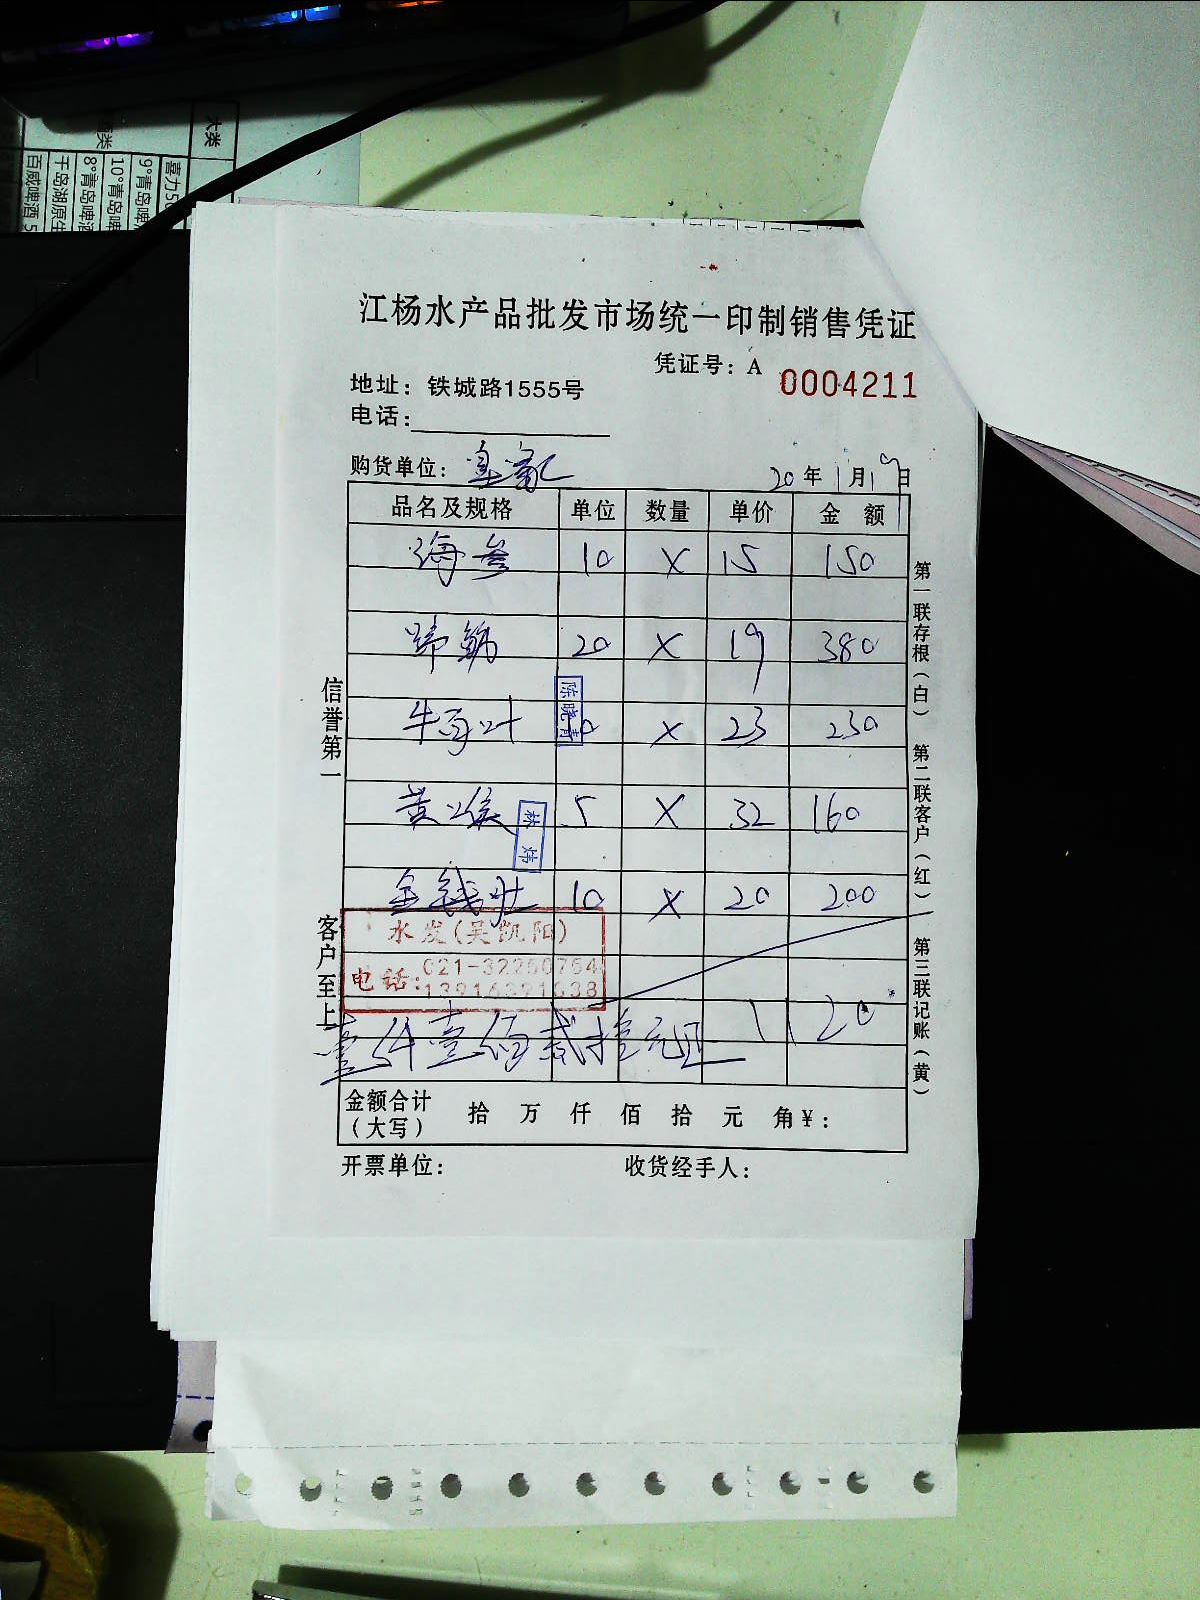 大类
喜力50
9°青岛啤
10°青岛啤
8°青岛啤酒
千岛湖原生
百威啤酒 5
江杨水产品批发市场统一印制销售凭证
凭证号：A 0004211
地址：铁城路1555号
电话：
购货单位：
20年1月19日
品名及规格 单位 数量 单价 金 额
海参 10 X 15 150
蹄筋 20 X 19 380
牛百叶 10 X 23 230
陈晓青
黄喉 5 X 32 160
林炜
金钱肚 10 X 20 200
水发(吴凯阳)
电话:021-32250754
壹仟壹佰贰拾元正 1120
金额合计（大写） 拾 万 仟 佰 拾 元 角￥：
开票单位： 收货经手人：
信誉第一
客户至上
第一联存根（白）
第二联客户（红）
第三联记账（黄）